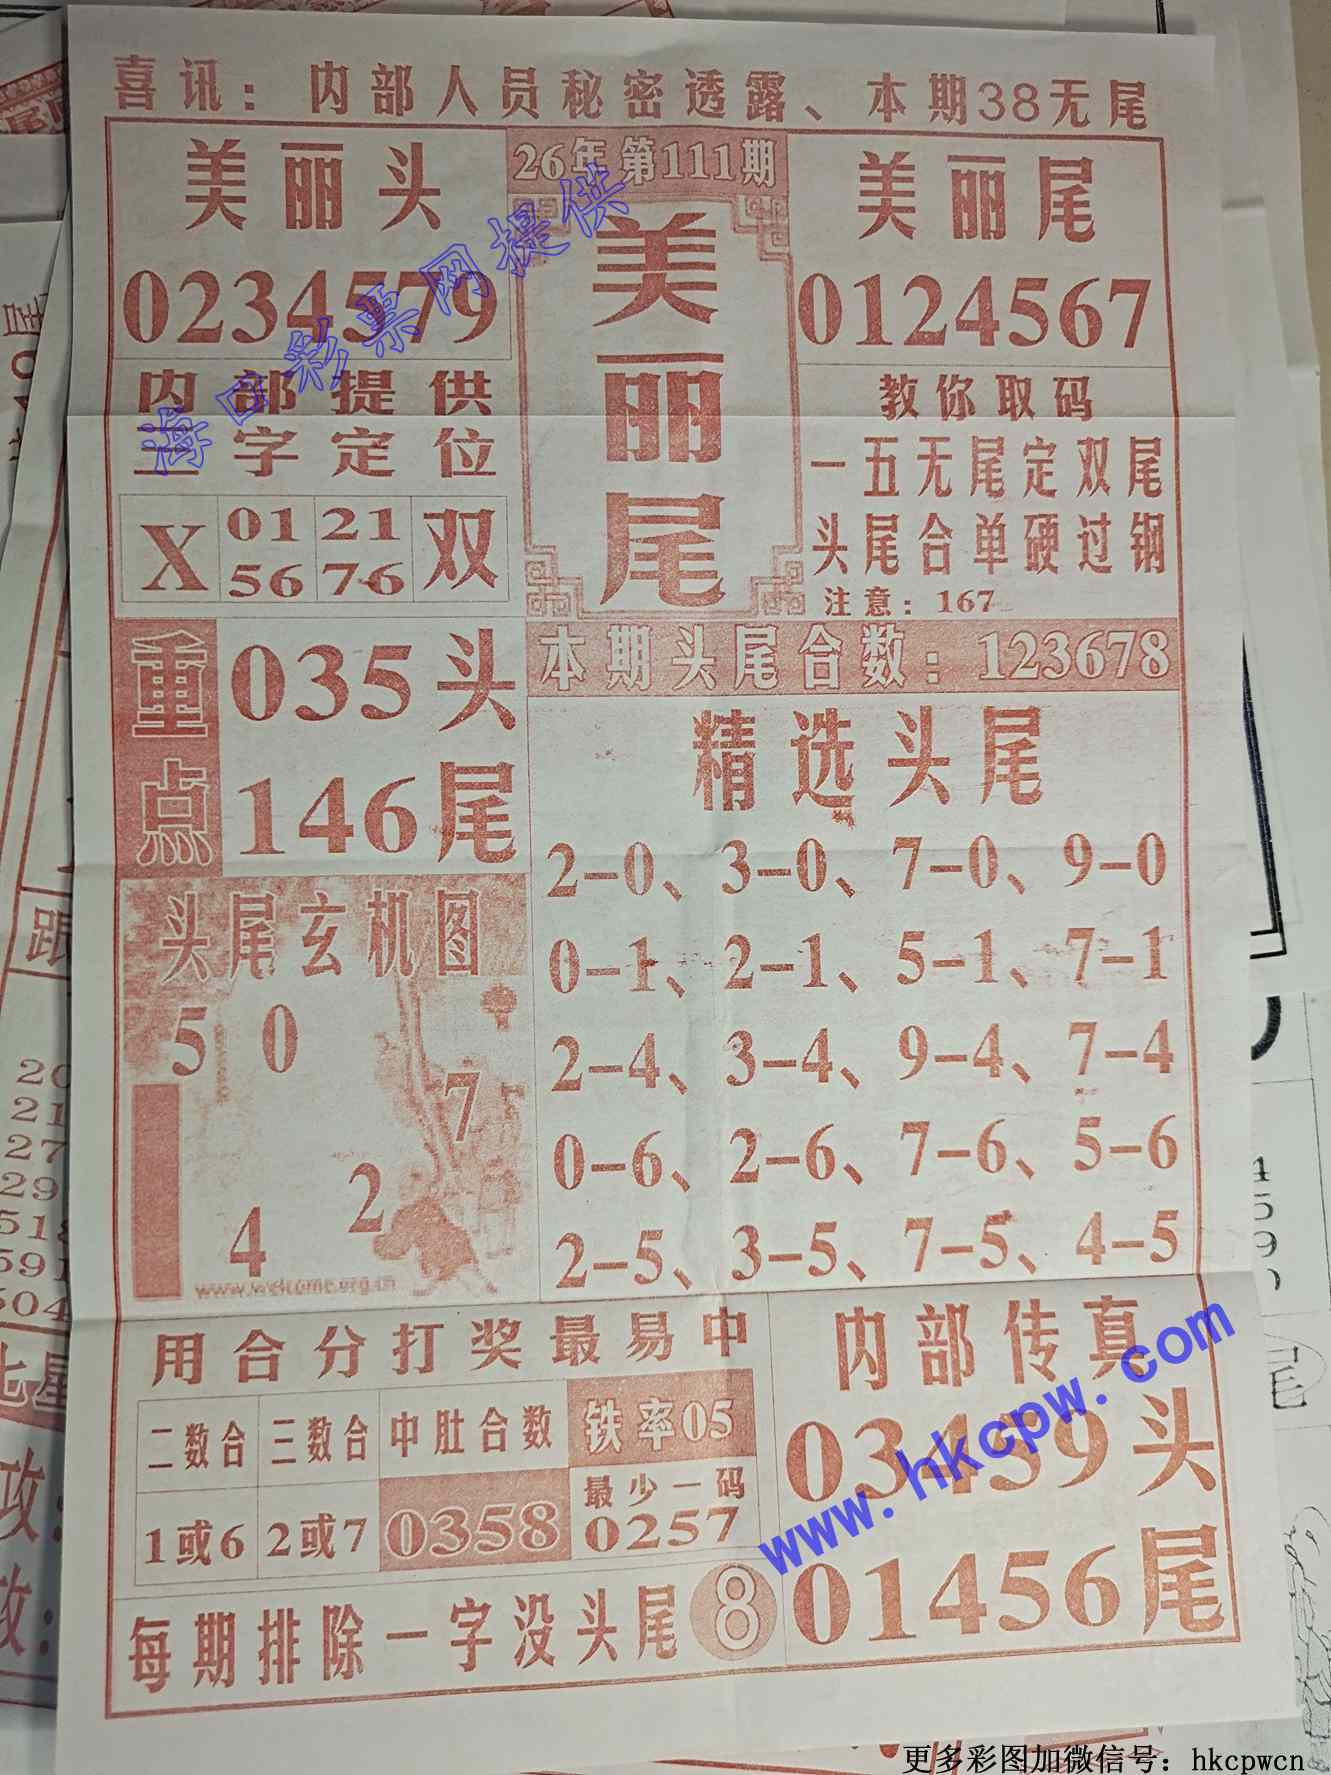 喜讯：内部人员秘密透露、本期38无尾
美丽头
0234579
26年第111期
美丽尾
美丽尾
0124567
内部提供
三字定位
X 01 56 21 76 双
教你取码
一五无尾定双尾
头尾合单硬过钢
注意：167
重点
035头
146尾
本期头尾合数：123678
精选头尾
2-0、3-0、7-0、9-0
0-1、2-1、5-1、7-1
2-4、3-4、9-4、7-4
0-6、2-6、7-6、5-6
2-5、3-5、7-5、4-5
头尾玄机图
5 0
7
2
4
www.welcome.org.cn
用合分打奖最易中
二数合 三数合 中肚合数 铁率05
1或6 2或7 0358 最少一码
0257
每期排除一字没头尾 8
内部传真
03459头
01456尾
海口彩票网提供
www.hkcpw.com
更多彩图加微信号：hkcpwcn
跟
20
21
27
29
518
591
504
七星